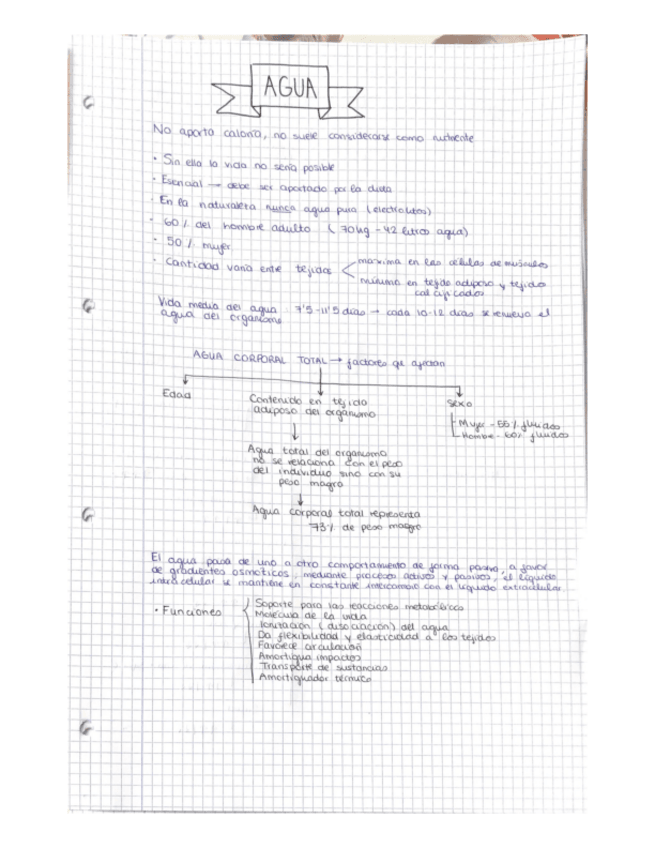 AGUA
No aporta caloría, no suele considerarse como nutriente
· Sin ella la vida no sería posible
· Esencial → debe ser aportado por la dieta
· En la naturaleza nunca agua pura (electrolitos)
· 60% del hombre adulto (70kg - 42 litros agua)
· 50% mujer
· Cantidad varía entre tejidos
máxima en las células de músculos
mínima en tejido adiposo y tejido
calcificados
Vida media del agua: 7'5-11'5 días → cada 10-12 días se renueva el
agua del organismo
AGUA CORPORAL TOTAL → factores qe afectan
Edad
Contenido en tejido
adiposo del organismo
Sexo
Mujer - 55% fluidos
Hombre - 60% fluidos
Agua total del organismo
no se relaciona con el peso
del individuo sino con su
peso magro
Agua corporal total representa
73% de peso magro
El agua pasa de uno a otro comportamiento de forma pasiva, a favor
de gradientes osmóticos, mediante procesos activos y pasivos, el líquido
intracelular se mantiene en constante intercambio con el líquido extracelular.
· Funciones
Soporte para las reacciones metabólicas
Molécula de la vida
Ionización (disociación) del agua
Da flexibilidad y elasticidad a los tejidos
Favorece circulación
Amortigua impactos
Transporte de sustancias
Amortiguador térmico